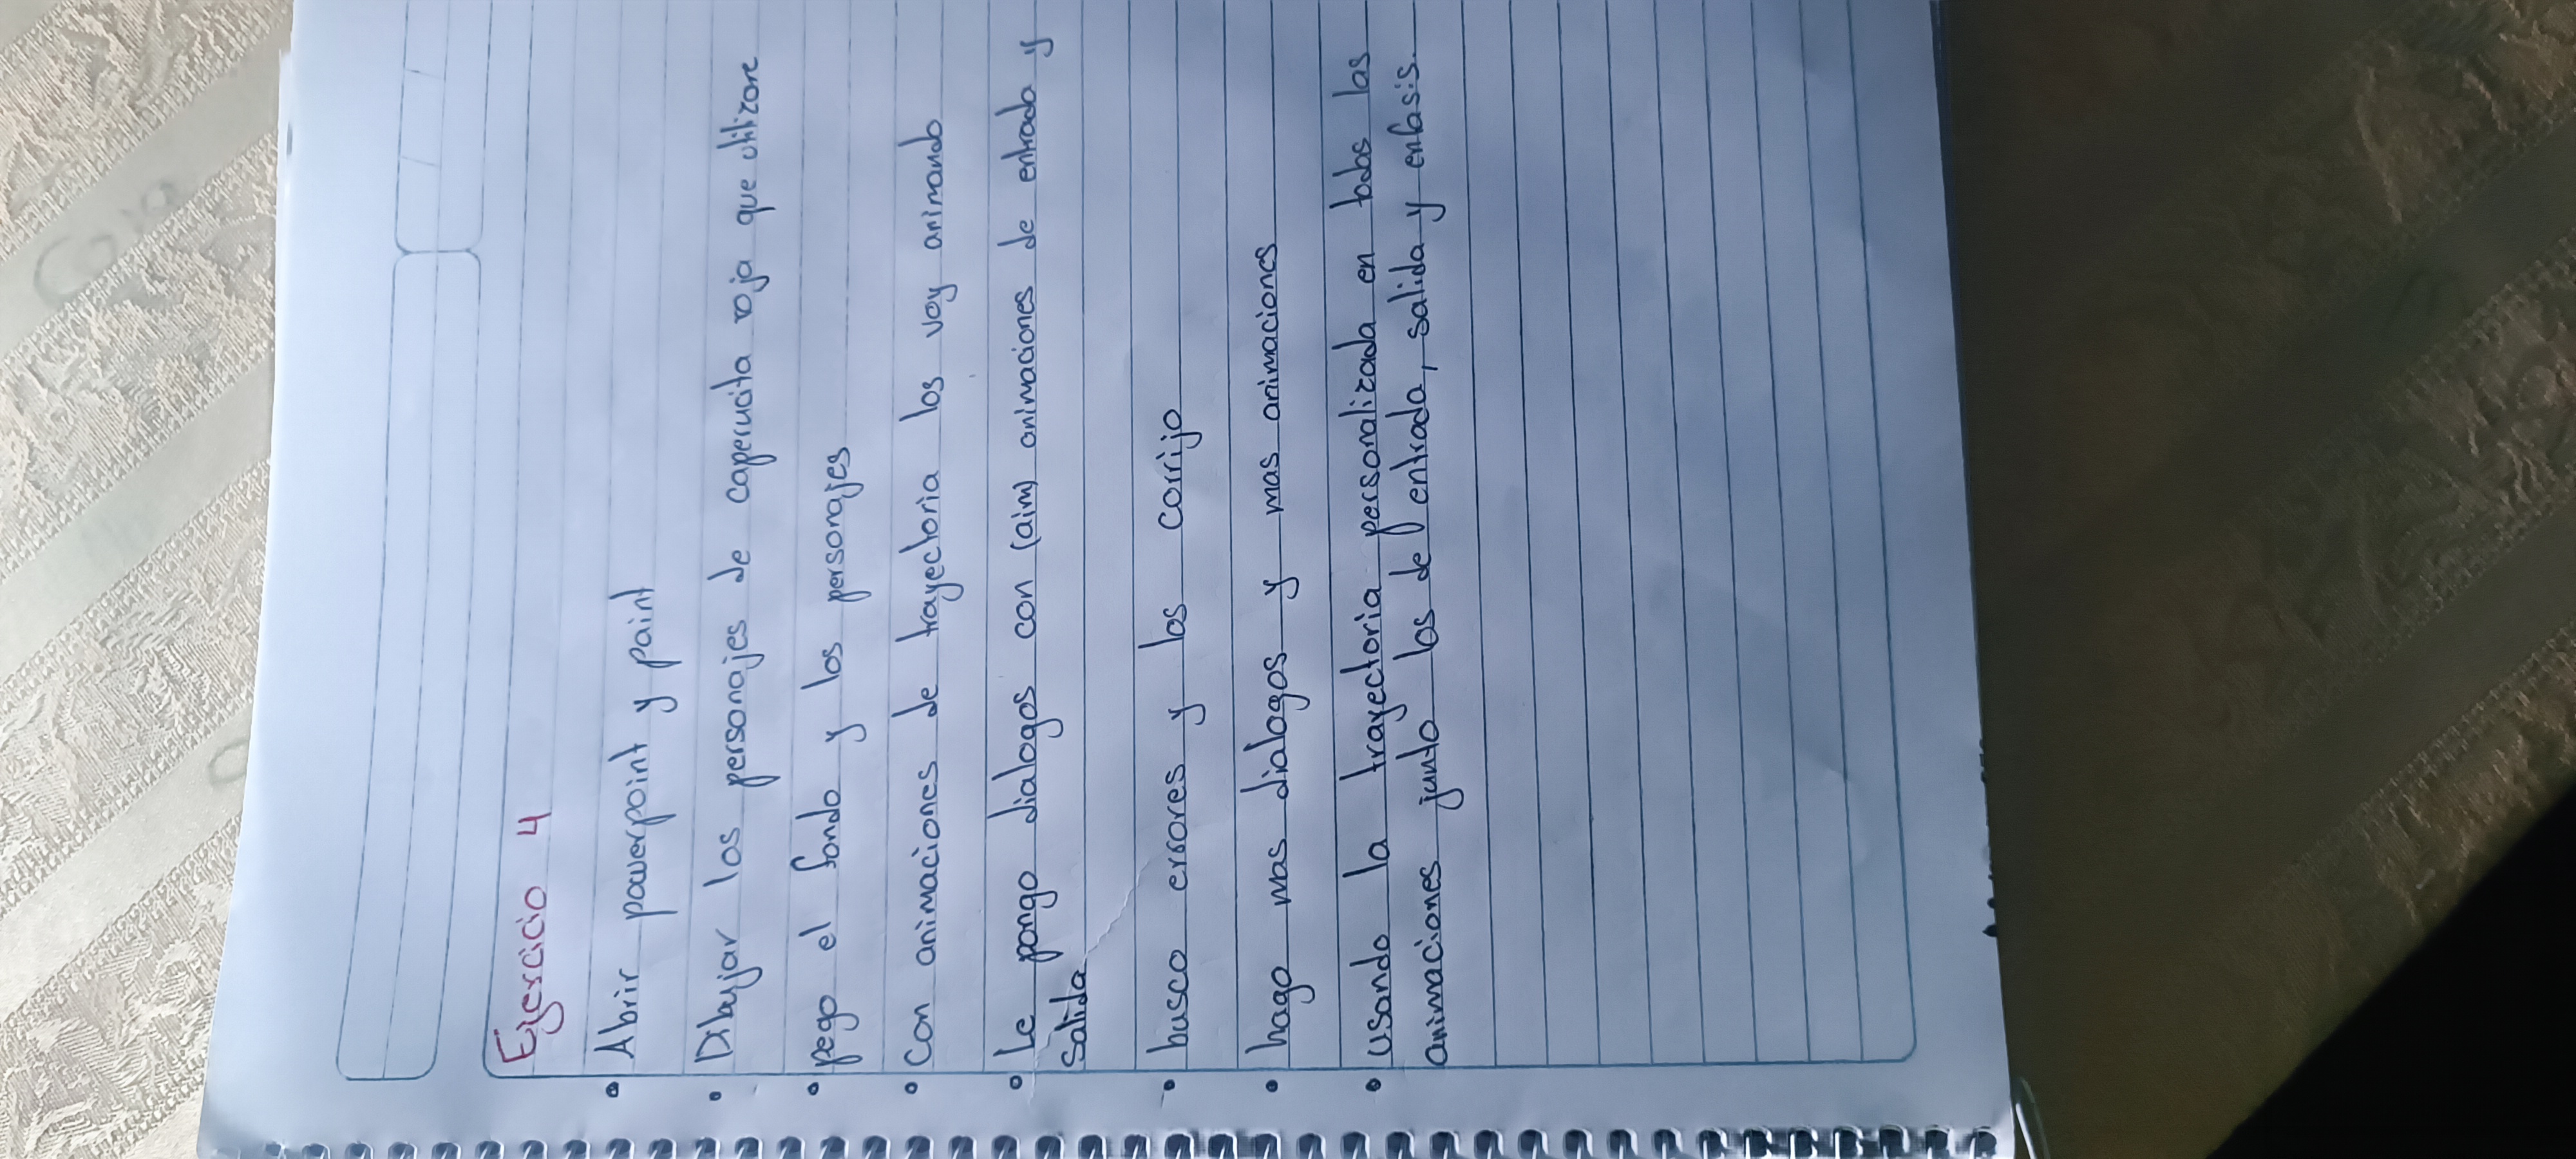 Ejercicio 4
• Abrir powerpoint y paint
• Dibujar los personajes de caperucita roja que utilizare
• pego el fondo y los personajes
• con animaciones de trayectoria los voy animando
• le pongo dialogos con (aim) animaciones de entrada y
salida
• busco errores y los corrijo
• hago mas dialogos y mas animaciones
• usando la trayectoria personalizada en todas las
animaciones junto los de entrada, salida y enfasis.